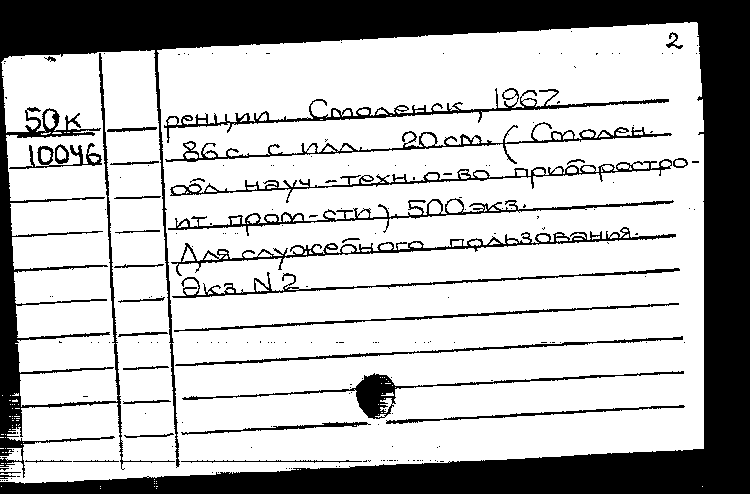 2
50к
10046
ренции. Смоленск, 1967.
86 с. с илл. 20 см. (Смолен.
обл. науч.-техн. о-во приборостро-
ит. пром-сти). 500 экз.
Для служебного пользования.
Экз. N 2